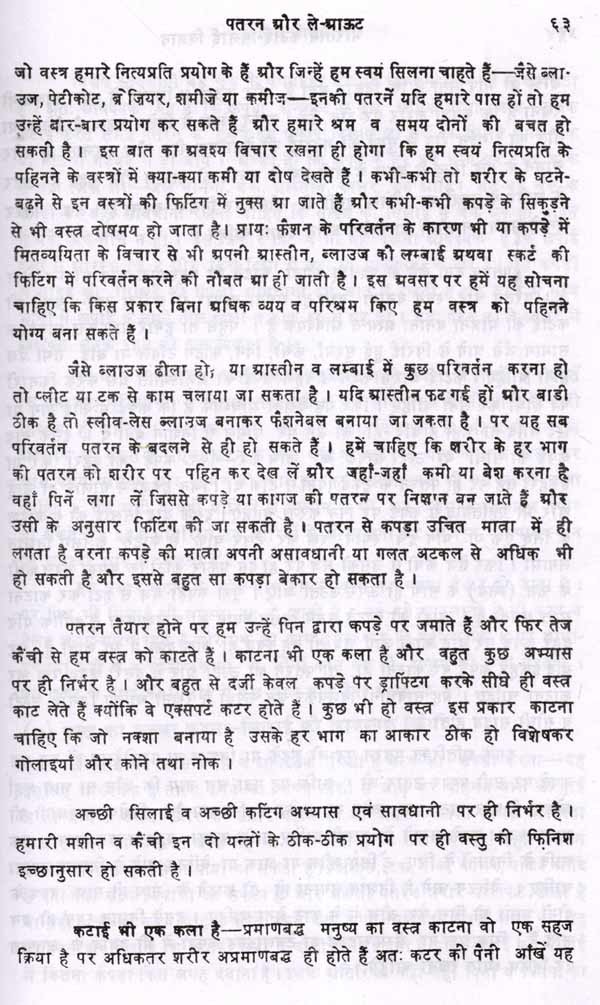 पतरन और ले-आऊट ६३
जो वस्त्र हमारे नित्यप्रति प्रयोग के हैं और जिन्हें हम स्वयं सिलना चाहते हैं—जैसे ब्ला-
उज, पेटीकोट, ब्रेजियर, शमीजें या कमीज—इनकी पतरनें यदि हमारे पास हों तो हम
उन्हें बार-बार प्रयोग कर सकते हैं और हमारे श्रम व समय दोनों की बचत हो
सकती है । इस बात का अवश्य विचार रखना ही होगा कि हम स्वयं नित्यप्रति के
पहिनने के वस्त्रों में क्या-क्या कमी या दोष देखते हैं । कभी-कभी तो शरीर के घटने-
बढ़ने से इन वस्त्रों की फिटिंग में नुक्स आ जाते हैं और कभी-कभी कपड़े के सिकुड़ने
से भी वस्त्र दोषमय हो जाता है। प्रायः फैशन के परिवर्तन के कारण भी या कपड़े में
मितव्ययिता के विचार से भी अपनी आस्तीन, ब्लाउज की लम्बाई अथवा स्कर्ट की
फिटिंग में परिवर्तन करने की नौबत आ ही जाती है । इस अवसर पर हमें यह सोचना
चाहिए कि किस प्रकार बिना अधिक व्यय व परिश्रम किए हम वस्त्र को पहिनने
योग्य बना सकते हैं ।
जैसे ब्लाउज ढीला हो, या आस्तीन व लम्बाई में कुछ परिवर्तन करना हो
तो प्लीट या टक से काम चलाया जा सकता है । यदि आस्तीन फट गई हों और बाडी
ठीक है तो स्लीव-लेस ब्लाउज बनाकर फैशनेबल बनाया जा जकता है । पर यह सब
परिवर्तन पतरन के बदलने से ही हो सकते हैं । हमें चाहिए कि शरीर के हर भाग
की पतरन को शरीर पर पहिन कर देख लें और जहाँ-जहाँ कमी या बेश करना है
वहाँ पिनें लगा लें जिससे कपड़े या कागज की पतरन पर निशान बन जाते हैं और
उसी के अनुसार फिटिंग की जा सकती है । पतरन से कपड़ा उचित मात्रा में ही
लगता है वरना कपड़े की मात्रा अपनी असावधानी या गलत अटकल से अधिक भी
हो सकती है और इससे बहुत सा कपड़ा बेकार हो सकता है ।
पतरन तैयार होने पर हम उन्हें पिन द्वारा कपड़े पर जमाते हैं और फिर तेज
कैंची से हम वस्त्र को काटते हैं । काटना भी एक कला है और बहुत कुछ अभ्यास
पर ही निर्भर है । और बहुत से दर्जी केवल कपड़े पर ड्राफ्टिंग करके सीधे ही वस्त्र
काट लेते हैं क्योंकि वे एक्सपर्ट कटर होते हैं । कुछ भी हो वस्त्र इस प्रकार काटना
चाहिए कि जो नक्शा बनाया है उसके हर भाग का आकार ठीक हो विशेषकर
गोलाइयाँ और कोने तथा नोक ।
अच्छी सिलाई व अच्छी कटिंग अभ्यास एवं सावधानी पर ही निर्भर है ।
हमारी मशीन व कैंची इन दो यन्त्रों के ठीक-ठीक प्रयोग पर ही वस्तु की फिनिश
इच्छानुसार हो सकती है ।
कटाई भी एक कला है—प्रमाणबद्ध मनुष्य का वस्त्र काटना वो एक सहज
क्रिया है पर अधिकतर शरीर अप्रमाणबद्ध ही होते हैं अतः कटर की पैनी आँखें यह